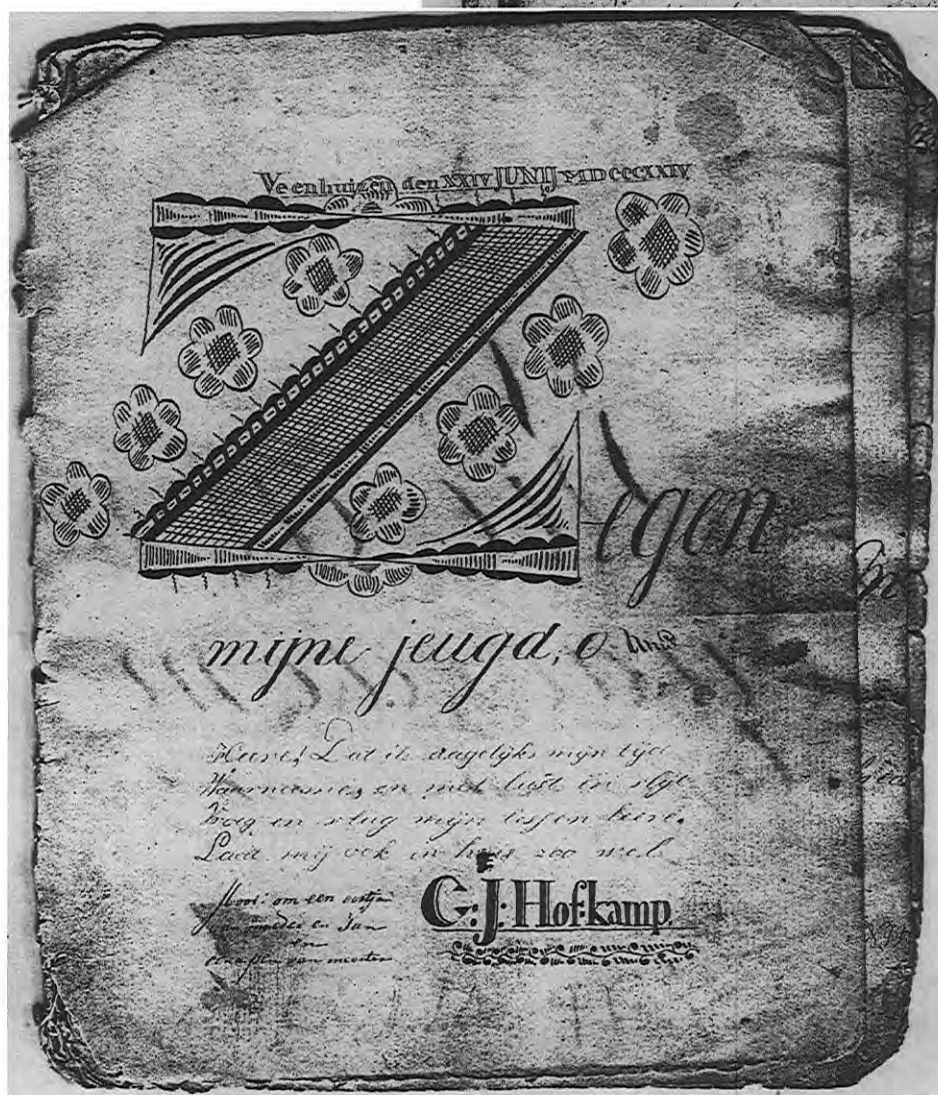 Veenhuizen den XXIV JUNIJ MDCCCXXIV
Zegen
mijne jeugd, o
Heere! Dat ik dagelijks mijn tijd
Waarneme, en met lust en vlijt
Vroeg en vlug mijn lessen leere.
Laat mij ook in huis zoo wel
Mooi om een
en Jan
en
van meester
G: J: Hofkamp.